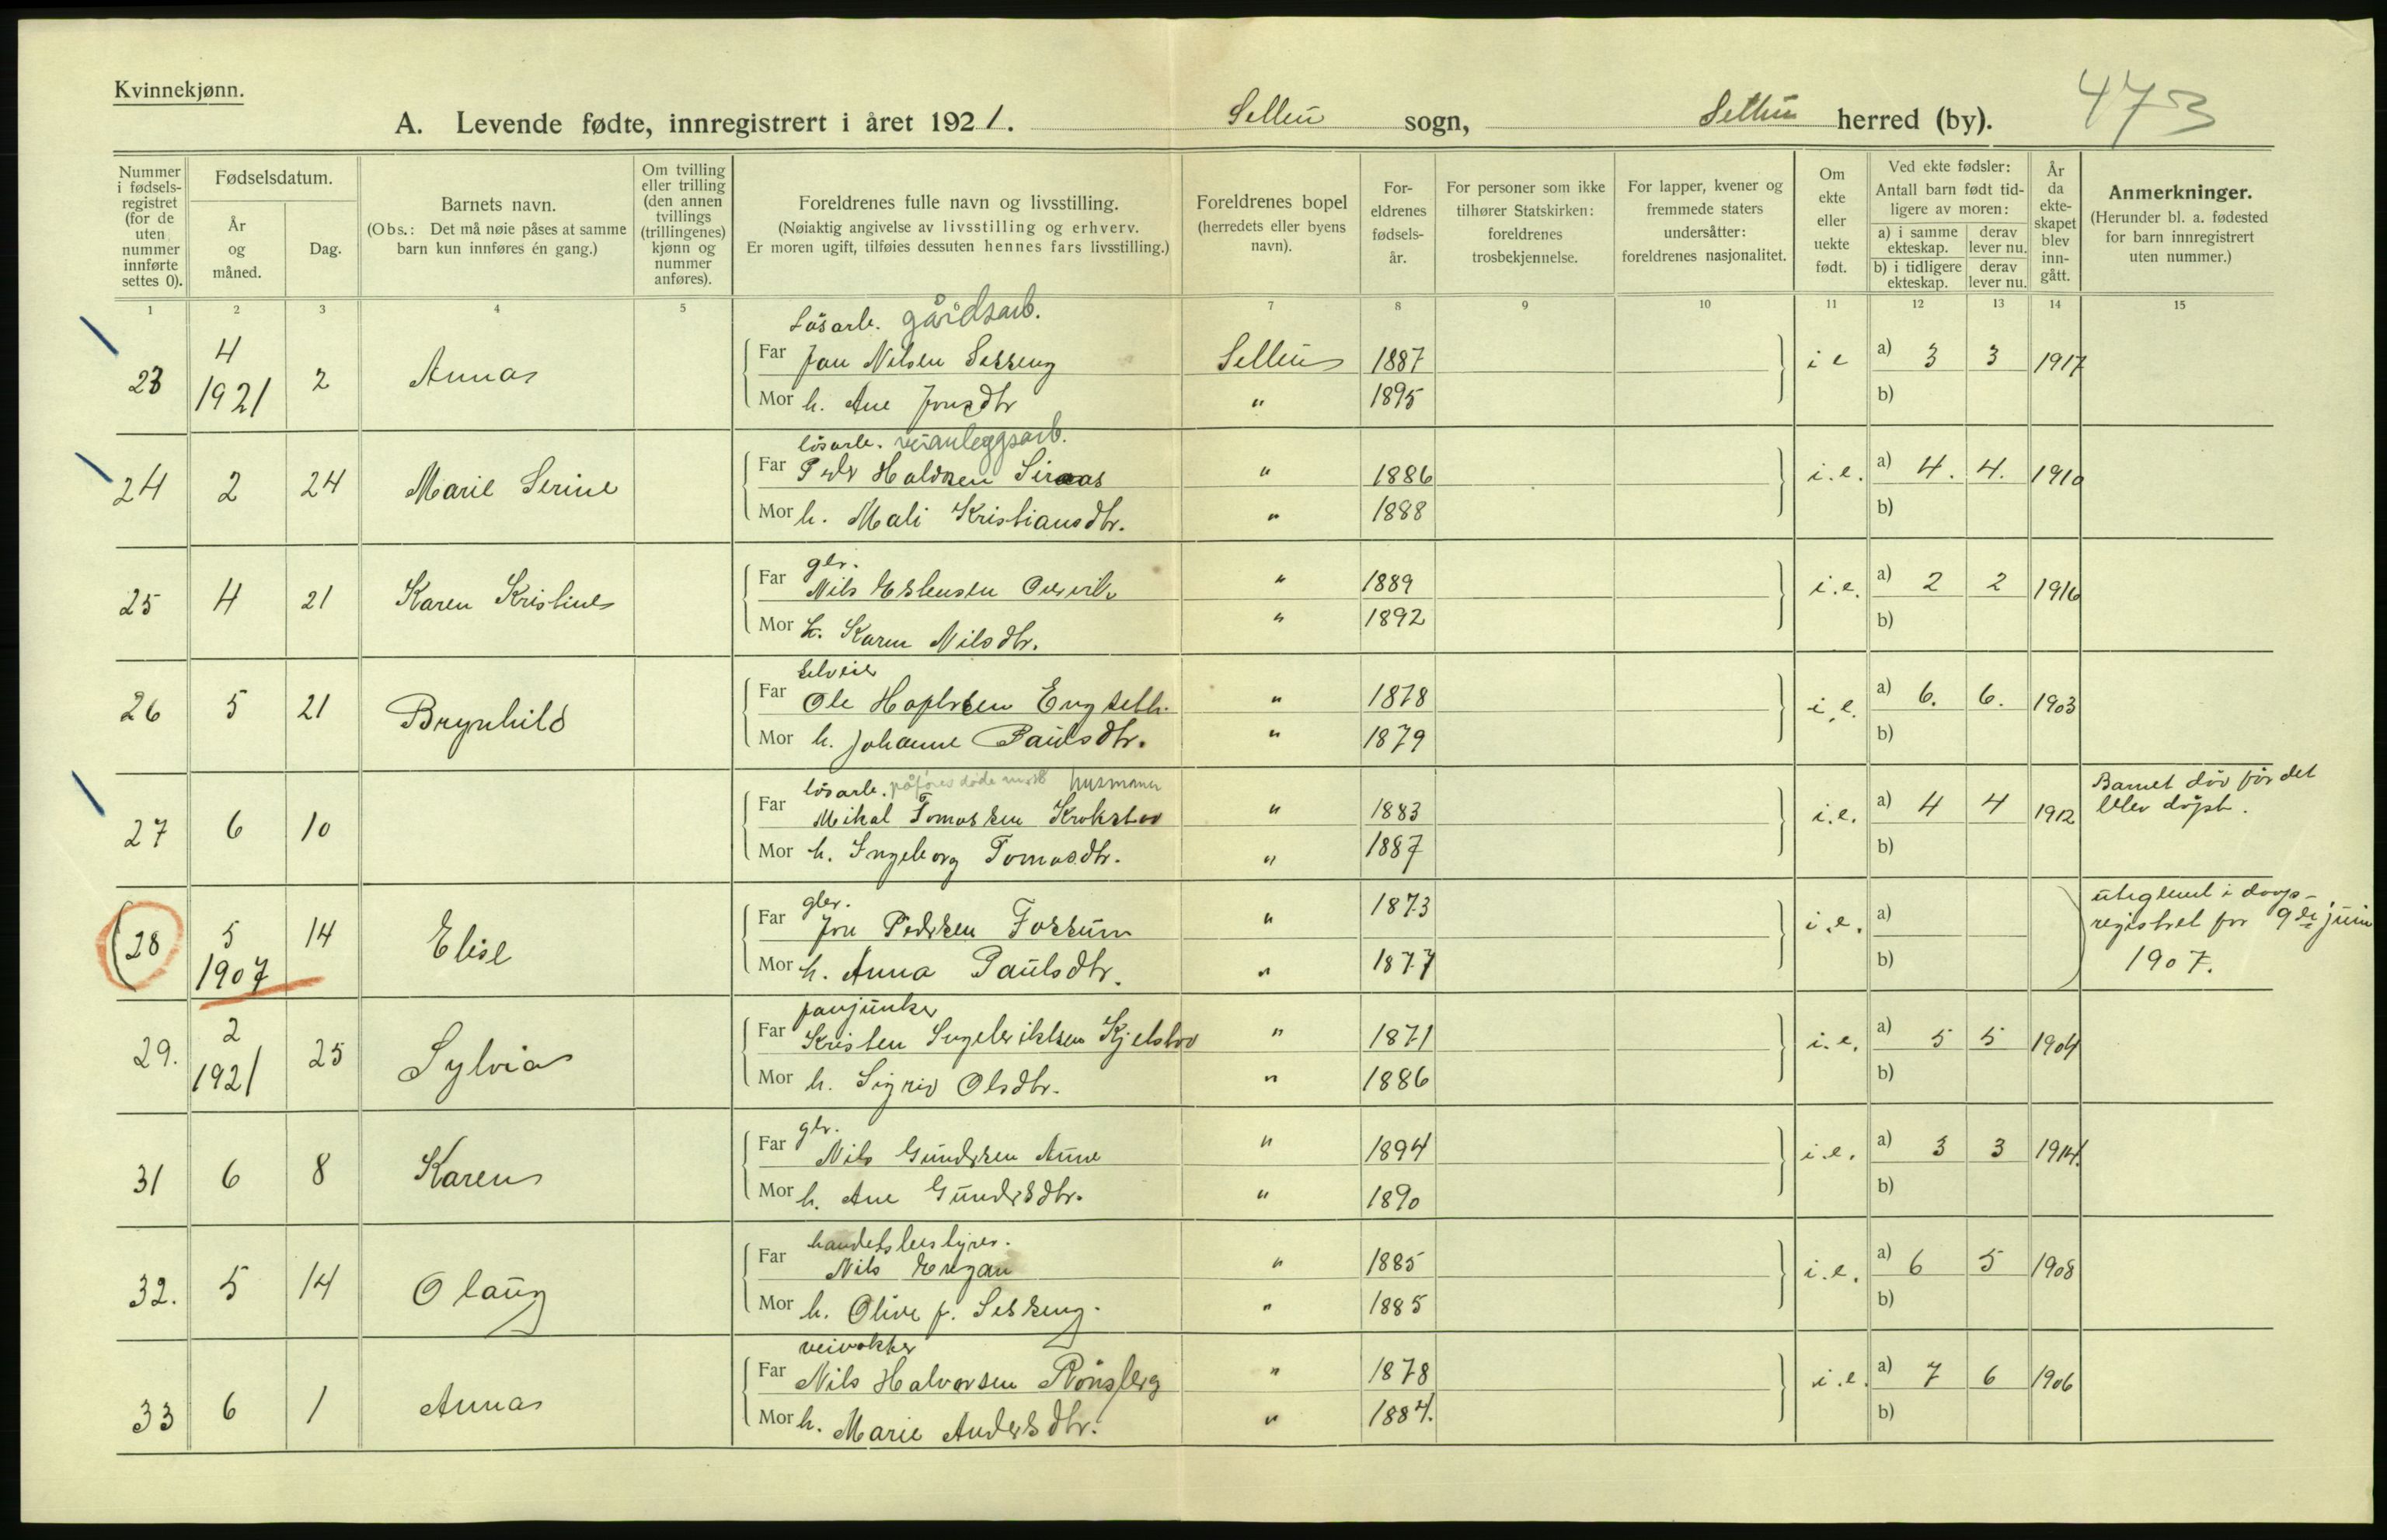 Kvinnekjønn.
A. Levende fødte, innregistrert i året 1921. Selbu sogn, Selbu herred (by). 473
Nummer i fødsels-registret (for de uten nummer innførte settes 0).
Fødselsdatum.
År og måned.
Dag.
Barnets navn.
(Obs.: Det må nøie påses at samme barn kun innføres én gang.)
Om tvilling eller trilling (den annen tvillings (trillingenes) kjønn og nummer anføres).
Foreldrenes fulle navn og livsstilling.
(Nøiaktig angivelse av livsstilling og erhverv.
Er moren ugift, tilføies dessuten hennes fars livsstilling.)
Foreldrenes bopel
(herredets eller byens navn).
For-eldrenes fødsels-år.
For personer som ikke tilhører Statskirken: foreldrenes trosbekjennelse.
For lapper, kvener og fremmede staters undersåtter: foreldrenes nasjonalitet.
Om ekte eller uekte født.
Ved ekte fødsler:
Antall barn født tid-ligere av moren:
a) i samme ekteskap.
derav lever nu.
b) i tidligere ekteskap.
derav lever nu.
År da ekte-skapet blev inn-gått.
Anmerkninger.
(Herunder bl. a. fødested for barn innregistrert uten nummer.)
1 2 3 4 5 7 8 9 10 11 12 13 14 15
løsarb. gårdsarb.
23 4 1921 2 Anna Far Jon Nilsen Sesseng Selbu 1887 i e a) 3 3 1917
Mor h. Ane Jonsdtr " 1895 b)
løsarb. veianleggsarb.
24 2 24 Marie Serine Far Peder Haldsen " 1886 i.e. a) 4. 4. 1910
Mor h. Mali Kristiansdtr. " 1888 b)
gbr.
25 4 21 Karen Kristine Far Nils Estensen " 1889 i.e. a) 2 2 1916
Mor h. Karen Nilsdtr. " 1892 b)
selveier
26 5 21 Brynhild Far Ole " 1878 i.e. a) 6. 6. 1903
Mor h. Johanne Paulsdtr. " 1879 b)
løsarb. påføres døde husmann
27 6 10 Far Mikal Tomassen Krokstad " 1883 i.e. a) 4 4 1912 Barnet død før det
blev døpt.
Mor h. Ingeborg Tomasdtr. " 1887 b)
gbr.
28 5 1907 14 Elise Far Jon Pedersen Fossum " 1873 i.e. a) uteglemt i daaps-
registret for 9de juni
1907.
Mor h. Anna Paulsdtr. " 1877 b)
fanjunker
29. 2 1921 25 Sylvia Far Kristen Ingebriktsen Kjelstad " 1871 i.e. a) 5 5 1904
Mor h. Sigrid Olsdtr. " 1886 b)
gbr.
31 6 8 Karen Far Nils Gundersen Aune " 1894 i.e. a) 3 3 1914.
Mor h. Ane Gundersdtr. " 1890 b)
handelsbestyrer.
32. 5 14 Olaug Far Nils Engan " 1885 i.e. a) 6 5 1908
Mor h. Olive f. Sesseng. " 1885 b)
veivokter
33 6 1 Anna Far Nils Halvorsen Rönsberg " 1878 i.e. a) 7 6 1906
Mor h. Marie Andersdtr. " 1884. b)